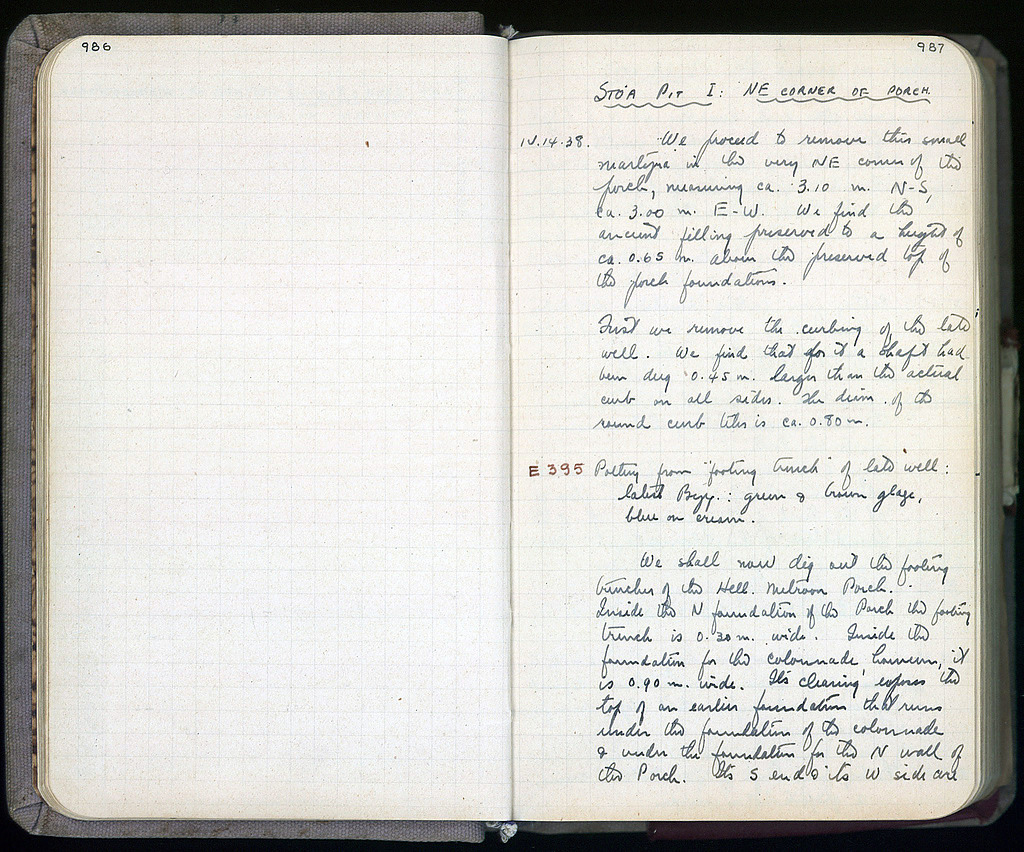 986
987
STOA PIT I: NE CORNER OF PORCH
IV.14.38. We proceed to remove this small
martyra in the very NE corner of the
porch, measuring ca. 3.10 m. N-S,
ca. 3.00 m. E-W. We find the
ancient filling preserved to a height of
ca. 0.65 m. above the preserved top of
the porch foundations.
First we remove the curbing of the late
well. We find that for it a shaft had
been dug 0.45 m. larger than the actual
curb on all sides. The diam. of the
round curb tiles is ca. 0.80 m.
E 395 Pottery from "footing trench" of late well:
latest Byz.: green & brown glaze,
blue on cream.
We shall now dig out the footing
trenches of the Hell. Metroon Porch.
Inside the N foundation of the Porch the footing
trench is 0.30 m. wide. Inside the
foundation for the colonnade, however, it
is 0.90 m. wide. Its clearing exposes the
top of an earlier foundation that runs
under the foundation of the colonnade
& under the foundation for the N wall of
the Porch. Its S end & its W side are